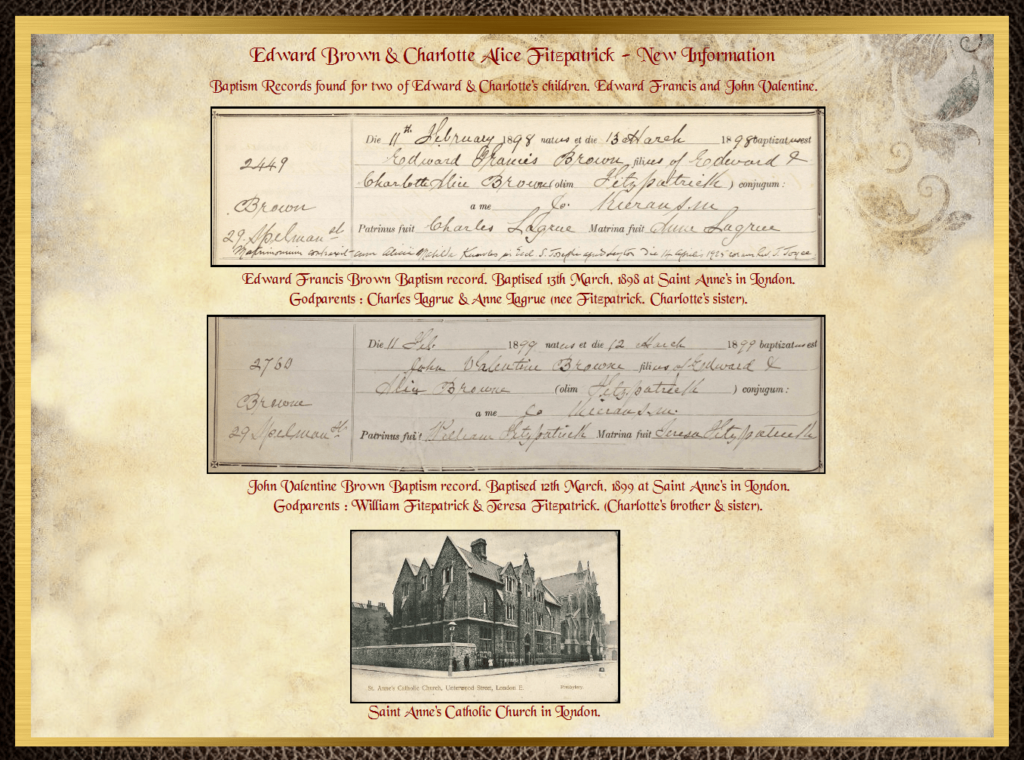 Edward Brown & Charlotte Alice Fitzpatrick - New Information
Baptism Records found for two of Edward & Charlotte's children, Edward Francis and John Valentine.
Die 11th February 1898 natus et die 13 March 1898 baptizatus est
2449
Edward Francis Brown filius of Edward &
Charlotte Alice Brown (olim Fitzpatrick) conjugum:
Brown
a me Jo. Kieran S.M
29 Spelman St
Patrinus fuit Charles Lagrue Matrina fuit Anne Lagrue
Matrimonium contraxit cum
Edward Francis Brown Baptism record. Baptised 13th March, 1898 at Saint Anne's in London.
Godparents : Charles Lagrue & Anne Lagrue (nee Fitzpatrick, Charlotte's sister).
Die 11 Feb. 1899 natus et die 12 March 1899 baptizatus est
2760
John Valentine Browne filius of Edward &
Alice Browne (olim Fitzpatrick) conjugum:
Browne
a me Jo Kieran S.M.
29 Spelman St.
Patrinus fuit William Fitzpatrick Matrina fuit Teresa Fitzpatrick
John Valentine Brown Baptism record. Baptised 12th March, 1899 at Saint Anne's in London.
Godparents : William Fitzpatrick & Teresa Fitzpatrick. (Charlotte's brother & sister).
St. Anne's Catholic Church, Underwood Street, London E.
Saint Anne's Catholic Church in London.